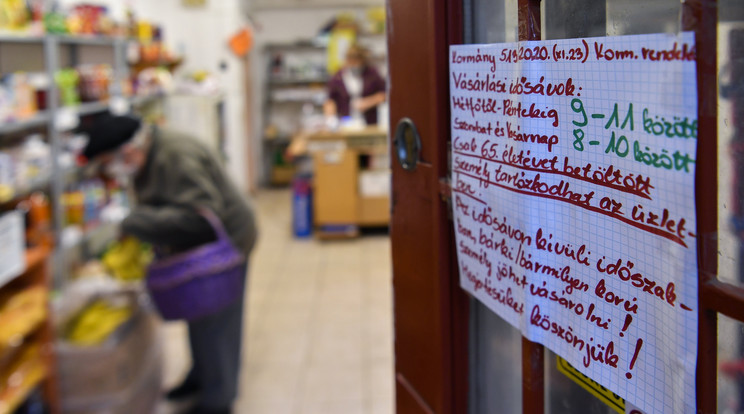 Kormány 519.2020. (XI.23) Korm. rendelet
Vásárlási idősávok:
Hétfőtől-Péntekig 9-11 között
Szombat és Vasárnap 8-10 között
Csak 65. életévet betöltött
személy tartózkodhat az üzlet-
ben!
Az idősávon kívüli időszak-
ban, bárki/bármilyen korú
személy jöhet vásárolni!
Megértésüket köszönjük!